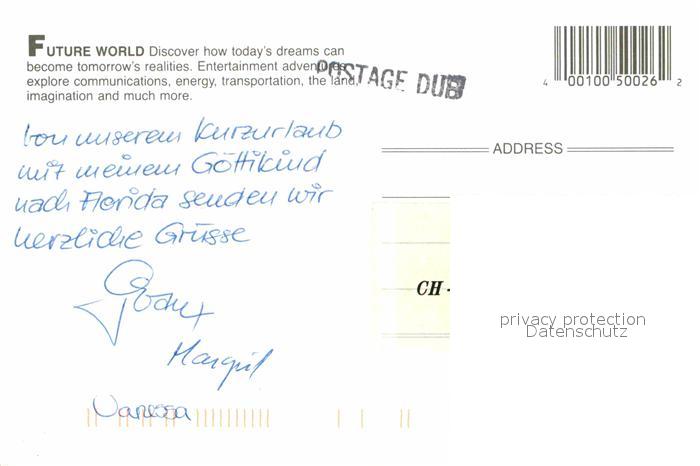 FUTURE WORLD Discover how today's dreams can
become tomorrow's realities. Entertainment adventures
explore communications, energy, transportation, the land,
imagination and much more.
POSTAGE DUE
4 00100 50026 2
Von unserem Kurzurlaub
mit meinem Göttikind
nach Florida senden wir
herzliche Grüsse
Margrit
Vanessa
ADDRESS
CH -
privacy protection
Datenschutz